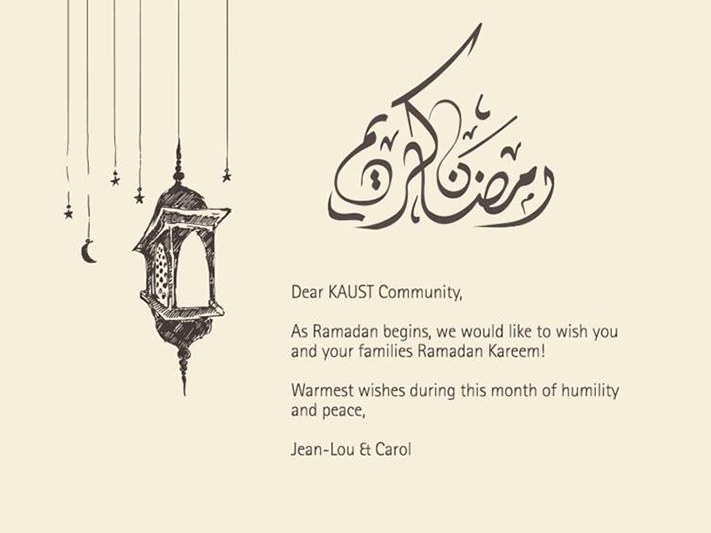 رمضان كريم
Dear KAUST Community,
As Ramadan begins, we would like to wish you
and your families Ramadan Kareem!
Warmest wishes during this month of humility
and peace,
Jean-Lou & Carol